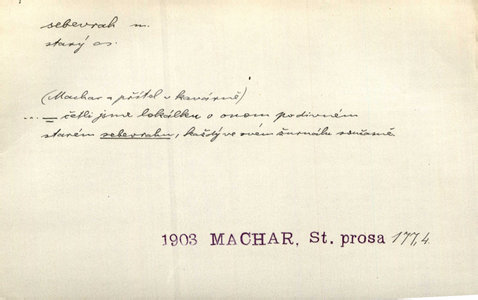 sebevrah m.
starý os.
(Machar a přítel v kavárně)
... = četli jsme lokálku o onom podivném
starém sebevrahu, každý ve svém žurnálu současně
1903 MACHAR, St. prosa 177,4